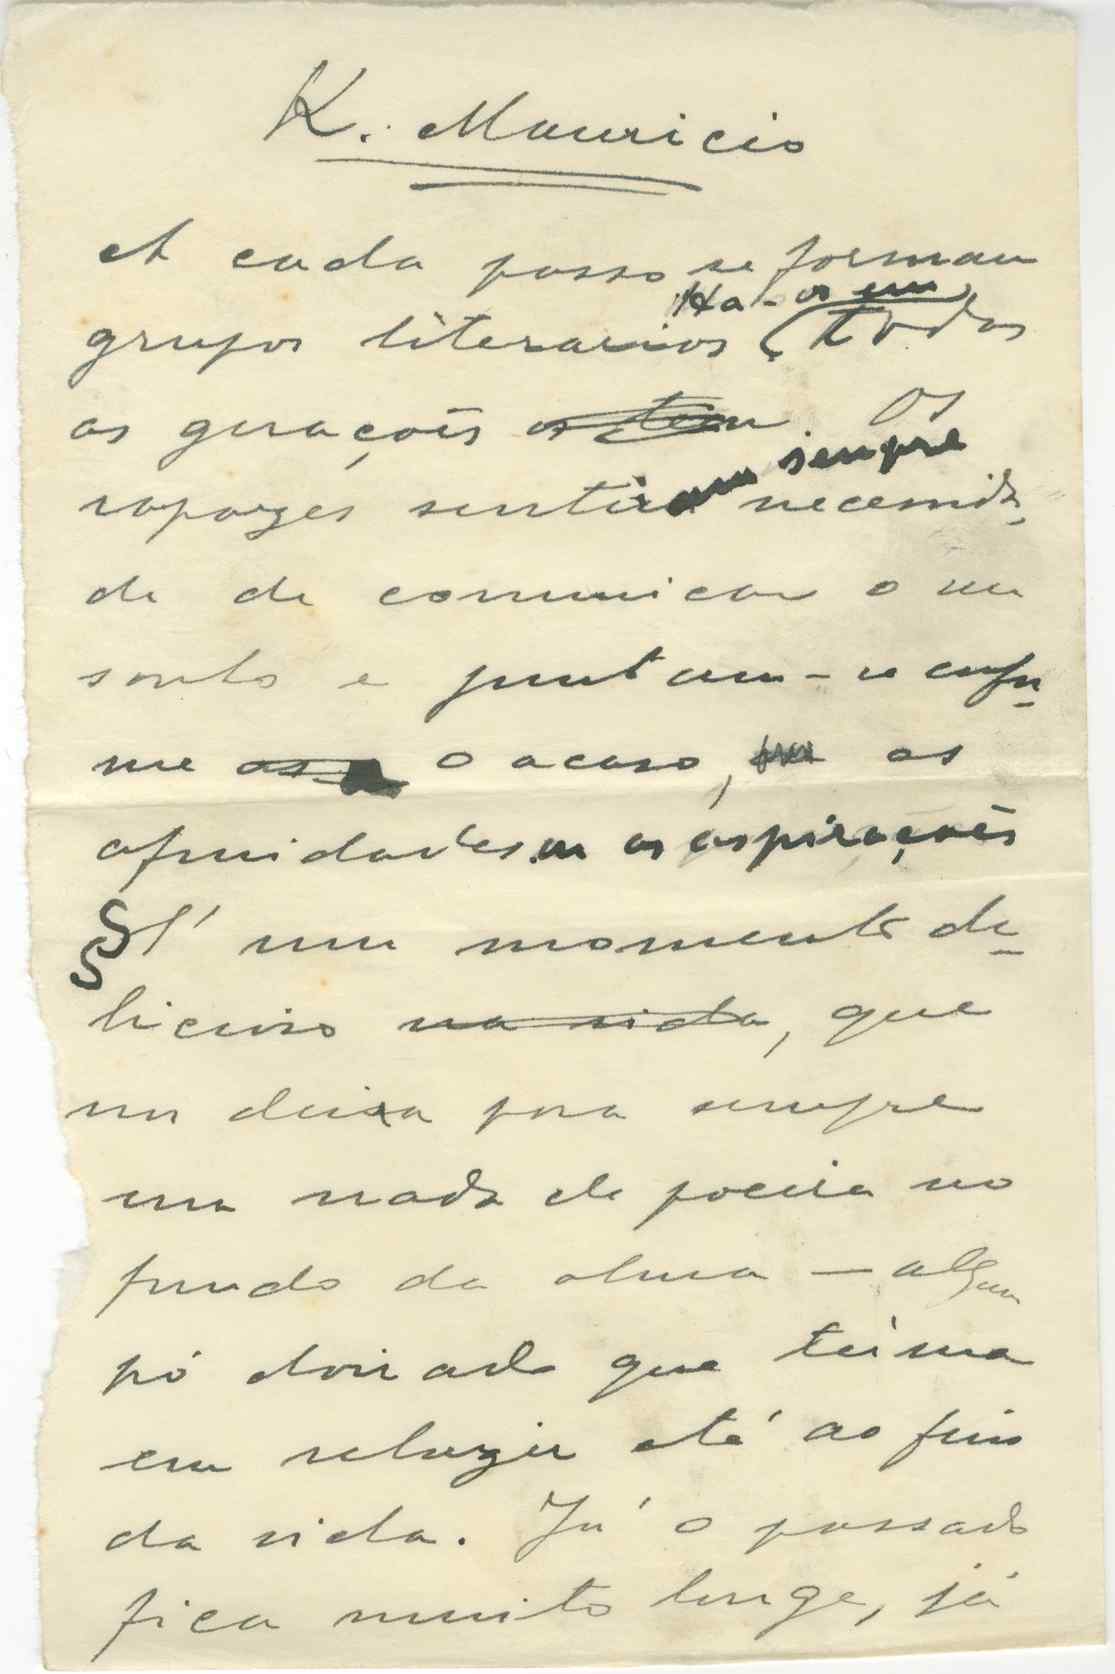 K. Mauricio
A cada passo se formam
Ha-os em
grupos literarios (todas
as gerações os tem Os
sempre
rapazes sentiram necessida-
de de comunicar o seu
sonho e juntam-se confor-
me o acaso, as
afinidades ou as aspirações
§ É um momento de-
licioso na vida, que
nos deixa para sempre
um nada de poeira no
fundo da alma — algum
pó doirado que teima
em reluzir até ao fim
da vida. Já o passado
fica muito longe, já